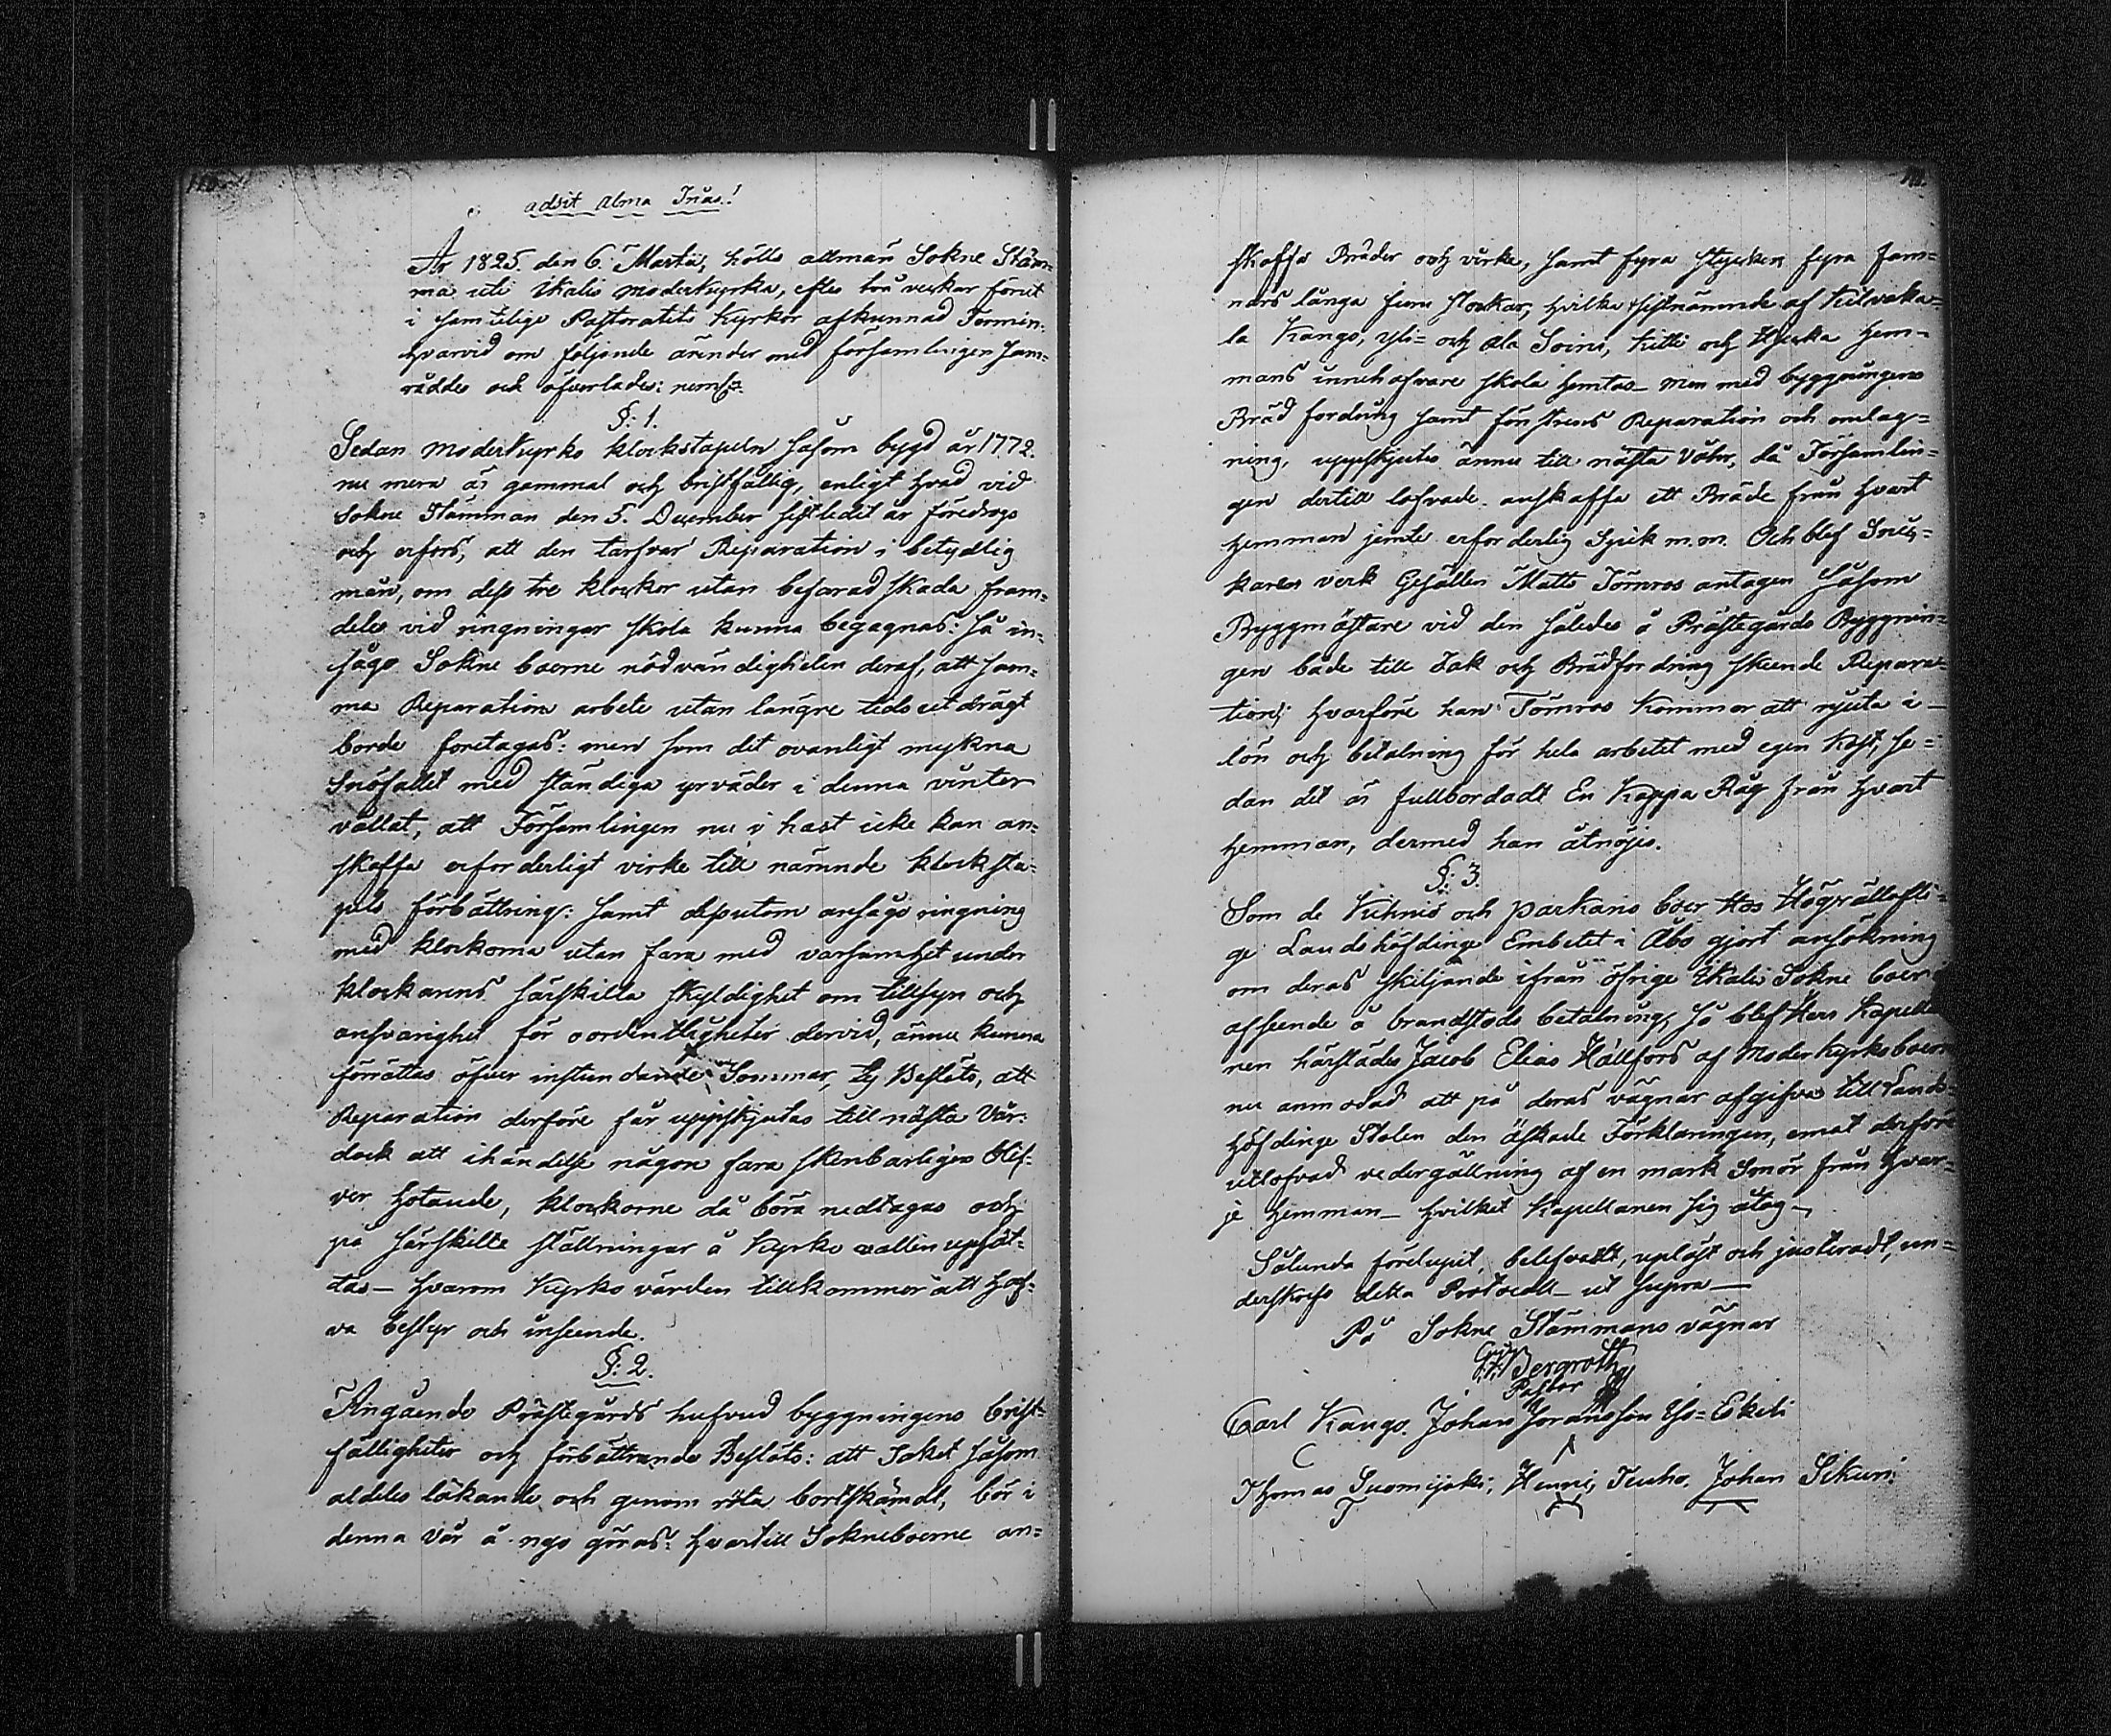 adsit Alma Trias!
År 1825. den 6. Martii, hölls allmän Sokne Stäm=
ma uti Ikalis Moderkyrka, efter två veckor förut
i samtelige Pastoratets Kyrkor afkunnad Termin.
hvarvid om följande ärender med församlingen sam=
råddes och öfverlades: neml:
§: 1.
Sedan Moderkyrko klockstapeln såsom bygd år 1772.
nu mera är gammal och bristfällig, enligt hvad vid
Sokne Stämman den 5. December sistledit år föredrogs
och erfors, att den tarfvar Reparation i betydlig
mån, om dess tre klockor utan befarad skada fram=
deles vid ringningar skola kunna begagnas: så in=
sågo Sokne boerne nödvändigheten deraf, att sam=
ma Reparations arbete utan längre tids utdrägt
borde företagas: men som det ovanligt mykna
Snöfallet med ständiga yrväder i denna vinter
vållat, att Församlingen nu i hast icke kan an=
skaffa erforderligt virke till nämnde klocksta=
pels förbättring: samt desutom ansågs ringning
med klockorna utan fara med varsamhet under
klockarens särskilla skyldighet om tillsyn och
ansvarighet för oordentligheter dervid, ännu kunna
förrättas öfver instundande Sommar, ty Beslöts, att
Reparation derföre får uppskjutas till nästa Vår:
dock att ihändelse någon fara skenbarligen blif=
ver hotande, klockorne då böra nedtagas och
på särskilte ställningar å Kyrko vallen upsät=
tas – hvarom Kyrko värden tillkommer att haf=
va bestyr och inseende.
§: 2.
Angående Prästegårds hufvud byggningens brist=
fälligheter och förbättrande Beslöts: att Taket såsom
aldeles läkande och genom röta bortskämdt, bör i
denna Vår å nyo göras: hvartill Sokneboerne an=
skaffa Bräder och virke, samt fyra stycken fyra fam=
nars långa furu stockar, hvilka sistnämnde af Kilvaka=
la Kango, Yli= och Ala Soini, Kitti och Hyska hem=
mans innehafvare skola hemtas – men med byggningens
Bräd fordring samt fönstrens Reparation och omlag=
ning, uppskjutes ännu till nästa Våhr, då Församlin=
gen dertill lofvade anskaffa ett Bräde från hvart
hemman jemte erforderlig Spik m.m. Och blef Snic=
kares verk Gesällen Matts Törnros antagen såsom
Byggmästare vid den således å Prästegårds Byggnin=
gen både till Tak och Brädfordring skeende Repara=
tion; hvarföre han Törnros kommer att njuta i
lön och betalning för hela arbetet med egen kost, se=
dan det är fullbordadt En Kappa Råg från hvart
hemman, dermed han åtnöjes.
§: 3.
Som de Kihniö och Parkano boer hos Högvällofli=
ge Landshöfdinge Embetet i Åbo gjort ansökning
om deras skiljande ifrån öfrige Ikalis Sokne boer i
afseende å brandstods betalning, så blef Herr Kapella
nen härstädes Jacob Elias Hällfors af Moderkyrkoboerne
nu anmodad att på deras vägnar afgifva till Lands=
höfdinge Stolen den äskade Förklaringen, emot derföre
utlofvad vedergällning af en mark Smör från hvar=
je hemman – hvilket Kapellanen sig åtog –
Sålunda förelupit, belefvadt, upläst och justeradt, un=
derskrefs detta Protocoll – ut supra –
På Sokne Stämmans vägnar
Bergroth
Pastor
Carl Kango. Johan Göransson Iso=Eskeli
Thomas Suomijoki, Henric Teuho. Johan Sikuri.